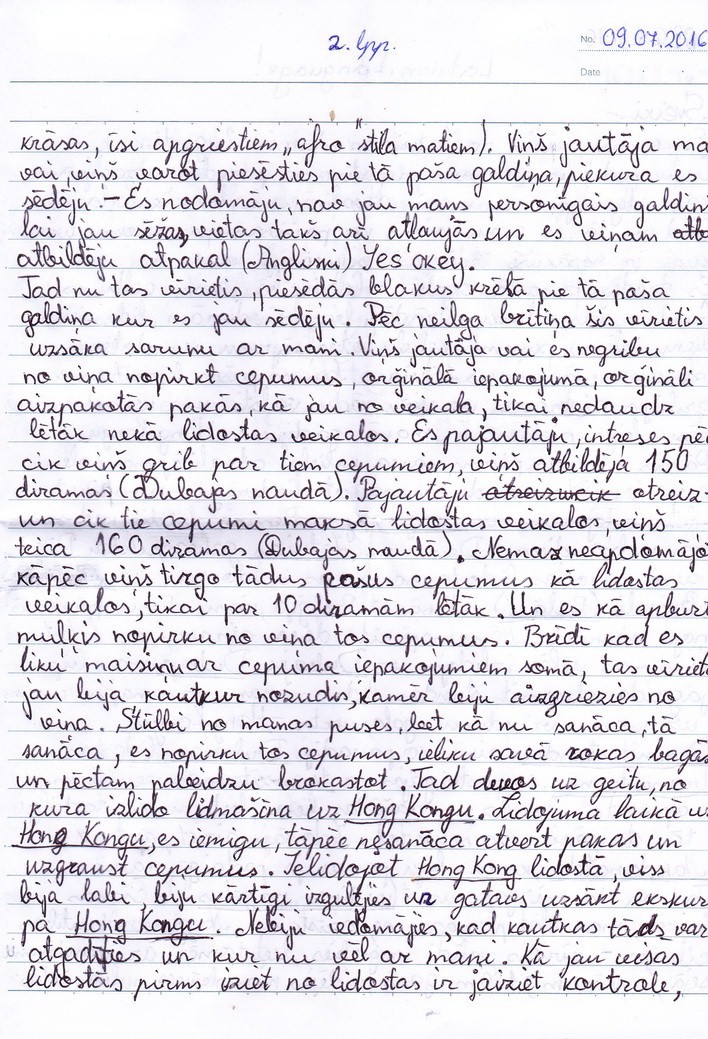 2. lpp.
No. 09.07.2016
Date
krāsas, īsi apgrieztiem „afro" stila matiem). Viņš jautāja ma
vai viņš varot piesēsties pie tā paša galdiņa, piekura es
sēdēju. – Es nodomāju, nav jau mans personīgais galdiņ
lai jau sēžas, vietas takš arī atļaujās un es viņam atb
atbildēju atpakaļ (Angliski) Yes okey.
Tad nu tas vīrietis, piesēdās blakus krēslā pie tā paša
galdiņa kur es jau sēdēju. Pēc neilga brītiņa šis vīrietis
uzsāka sarunu ar mani. Viņš jautāja vai es negribu
no viņa nopirkt cepumus, orģinālā iepakojumā, orģināli
aizpakotās pakās, kā jau no veikala, tikai nedaudz
lētāk nekā lidostas veikalos. Es pajautāju, intreses pēc
cik viņš grib par tiem cepumiem, viņš atbildēja 150
diramas (Dubajas naudā). Pajautāju atreizucik otreiz-
un cik tie cepumi maksā lidostas veikalos, viņš
teica 160 diramas (Dubajas naudā). Nemaz neapdomājo
kāpēc viņš tirgo tādus pašus cepumus kā lidostas
veikalos, tikai par 10 diramām lētāk. Un es kā apburt
muļķis nopirku no viņa tos cepumus. Brīdī kad es
liku maisiņu ar cepuma iepakojumiem somā, tas vīrieti
jau bija kautkur nozudis, kamēr biju aizgriezies no
viņa. Stulbi no manas puses, bet kā nu sanāca, tā
sanāca, es nopirku tos cepumus, ieliku savā rokas bagāž
un pēctam pabeidzu brokastot. Tad devos uz geitu, no
kura izlido lidmašīna uz Hong Kongu. Lidojuma laikā uz
Hong Kongu, es iemigu, tāpēc nesanāca atvērt pakas un
uzgraust cepumus. Ielidojot Hong Kong lidostā, viss
bija labi, biju kārtīgi izgulējies uz gataves uzsākt ekskur
pa Hong Kongu. Nebiju iedomājies, kad kautkas tāds var
atgadīties un kur nu vēl ar mani. Kā jau visas
lidostās pirms iziet no lidostas ir jāiziet kontrole,